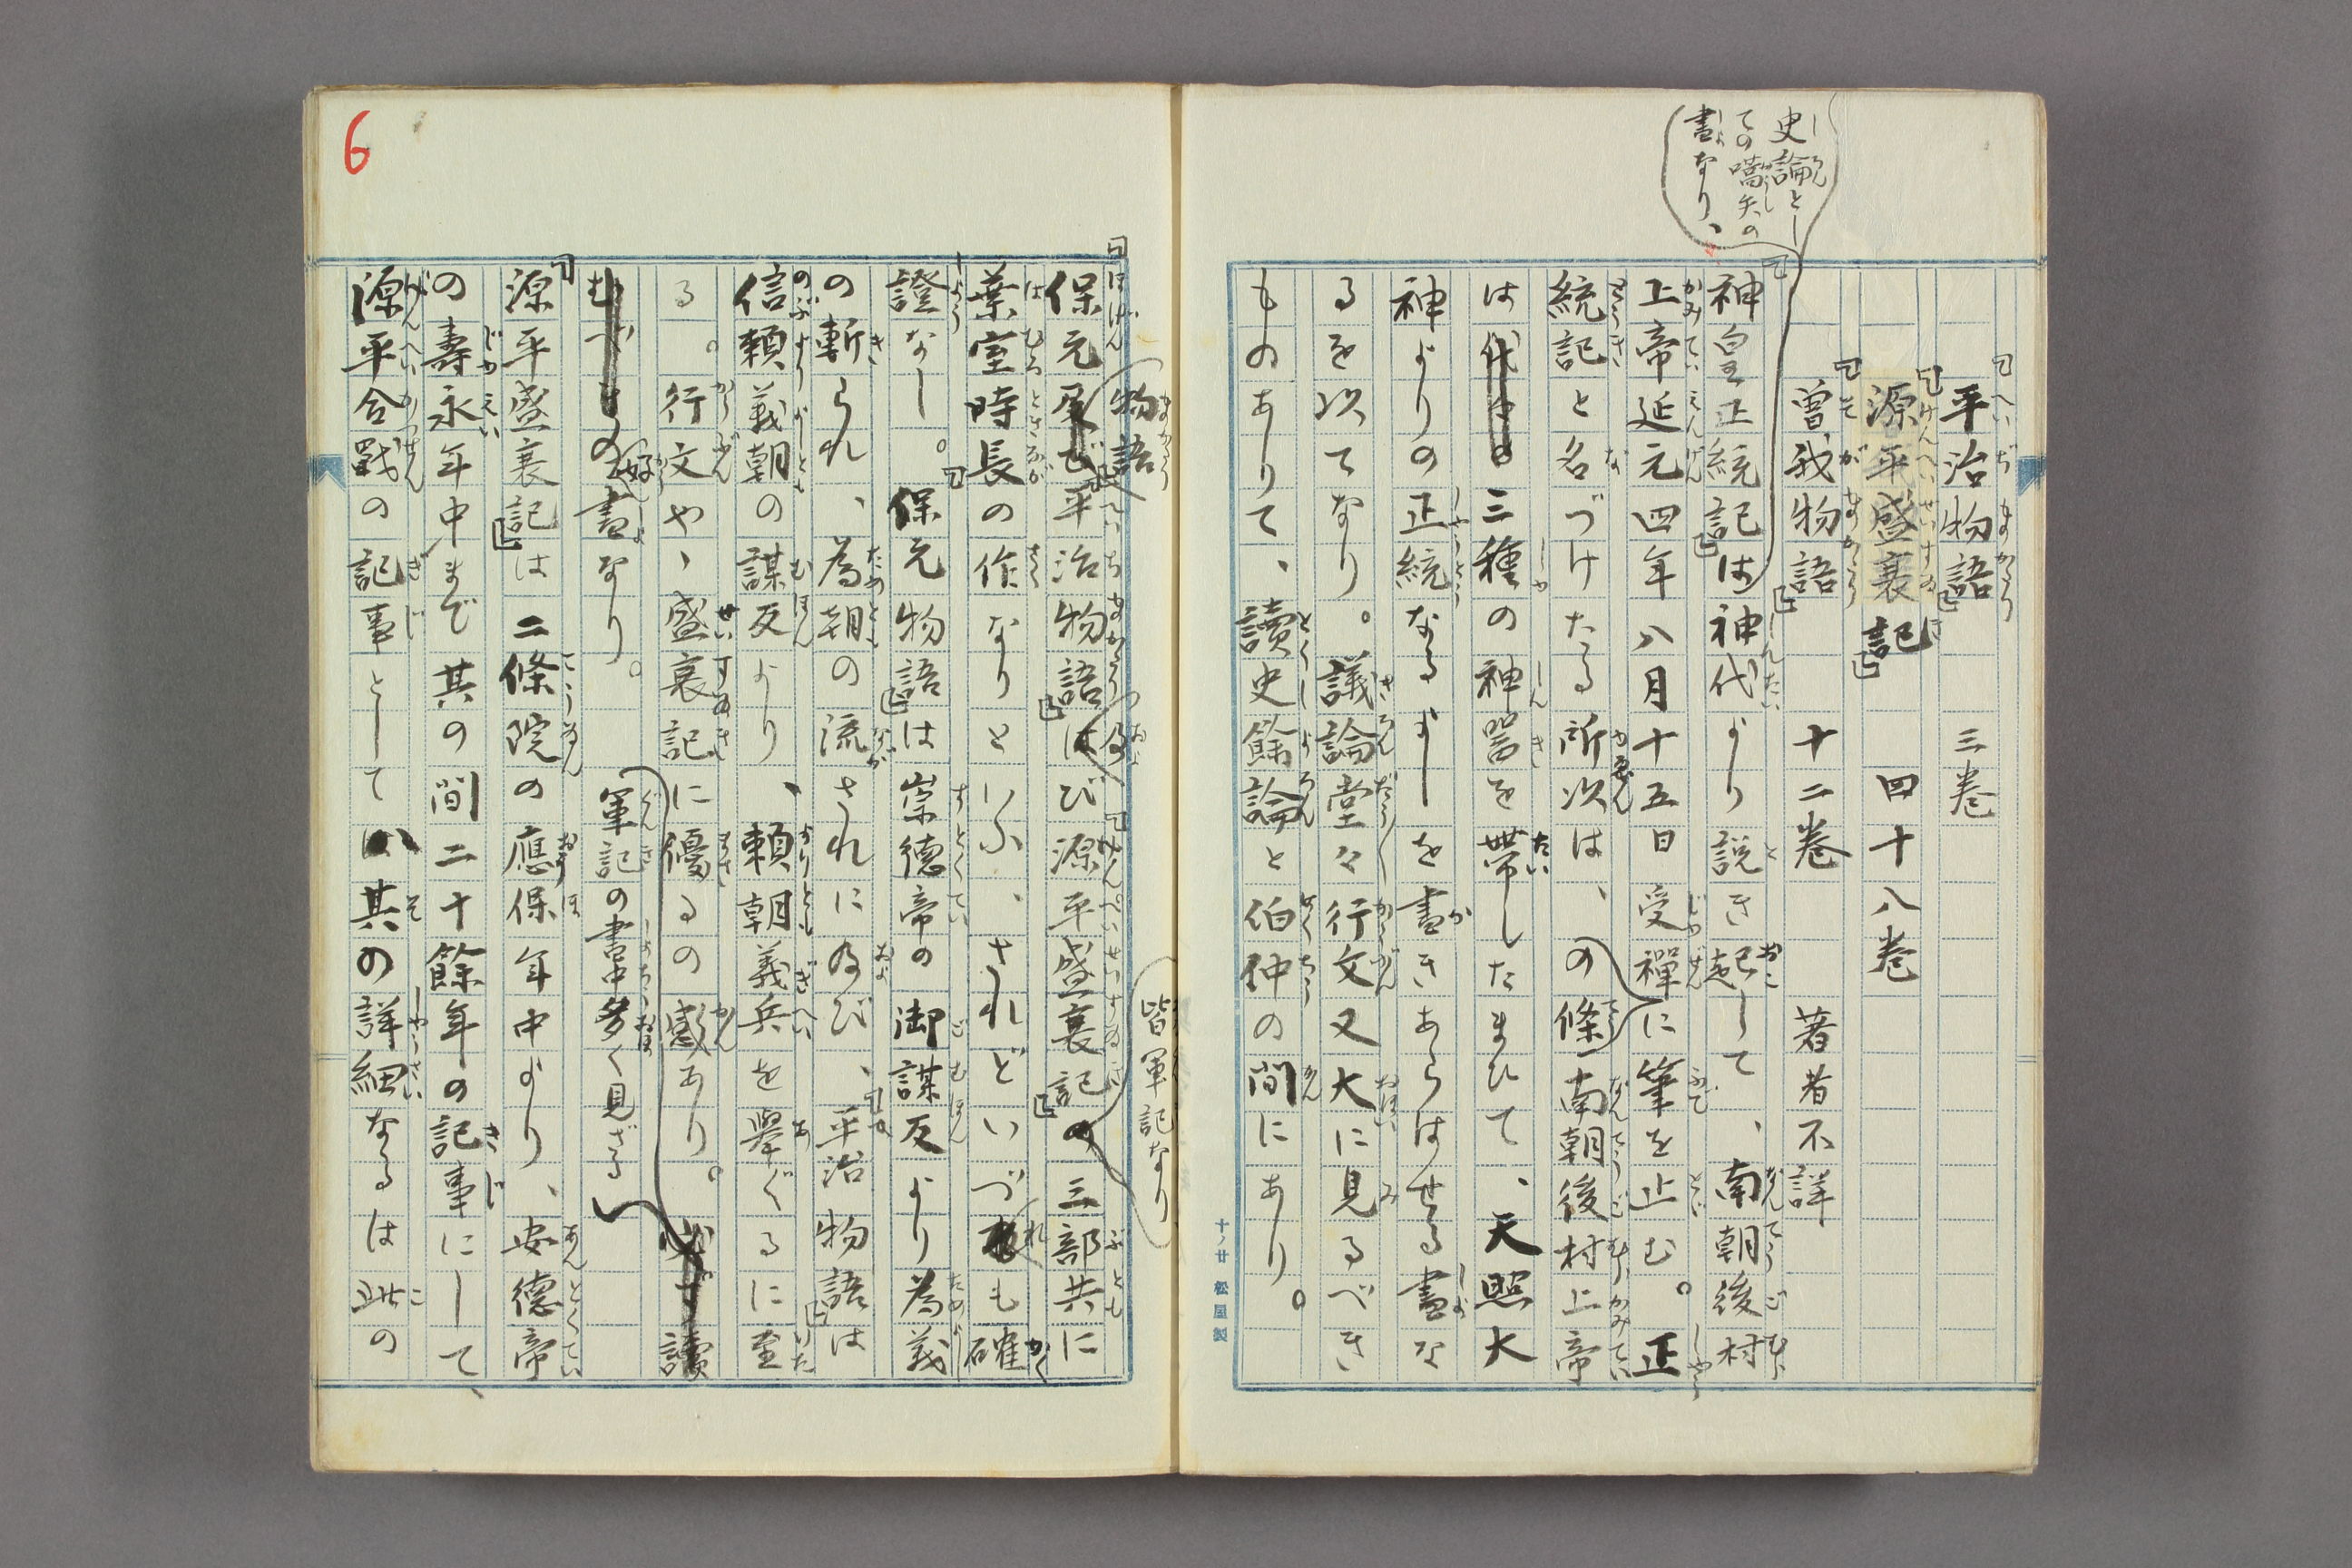 史論とし
ての嚆矢の
書なり、
『平治物語』　三巻
『源平盛衰記』　四十八巻
『曽我物語』　十二巻　著者不詳
『神皇正統記』は神代より説き起して、南朝後村
上帝延元四年八月十五日受禪に筆を止む。正
統記と名づけたる所次は、の條南朝後村上帝
は三種の神器を帯したまひて、天照大
神よりの正統なるよしを書きあらはせる書な
るを以てなり。議論堂々行文又大に見るべき
ものありて、讀史餘論と伯仲の間にあり。
十ノ廿 松屋製
6
皆軍記なり
『保元物語』『平治物語』及び『源平盛衰記』の三部共に
葉室時長の作なりといふ、されどいづれも確
證なし。『保元物語』は崇徳帝の御謀反より為義
の斬られ、為朝の流されに及び、『平治物語』は
信頼義朝の謀反より、頼朝義兵を擧ぐるに至
る。行文や、盛衰記に優るの感あり。讀
軍記の書中多く見ざる
好書なり。
『源平盛衰記』は二條院の應保年中より、安徳帝
の壽永年中まで其の間二十餘年の記事にして、
源平合戰の記事として其の詳細なるは此の